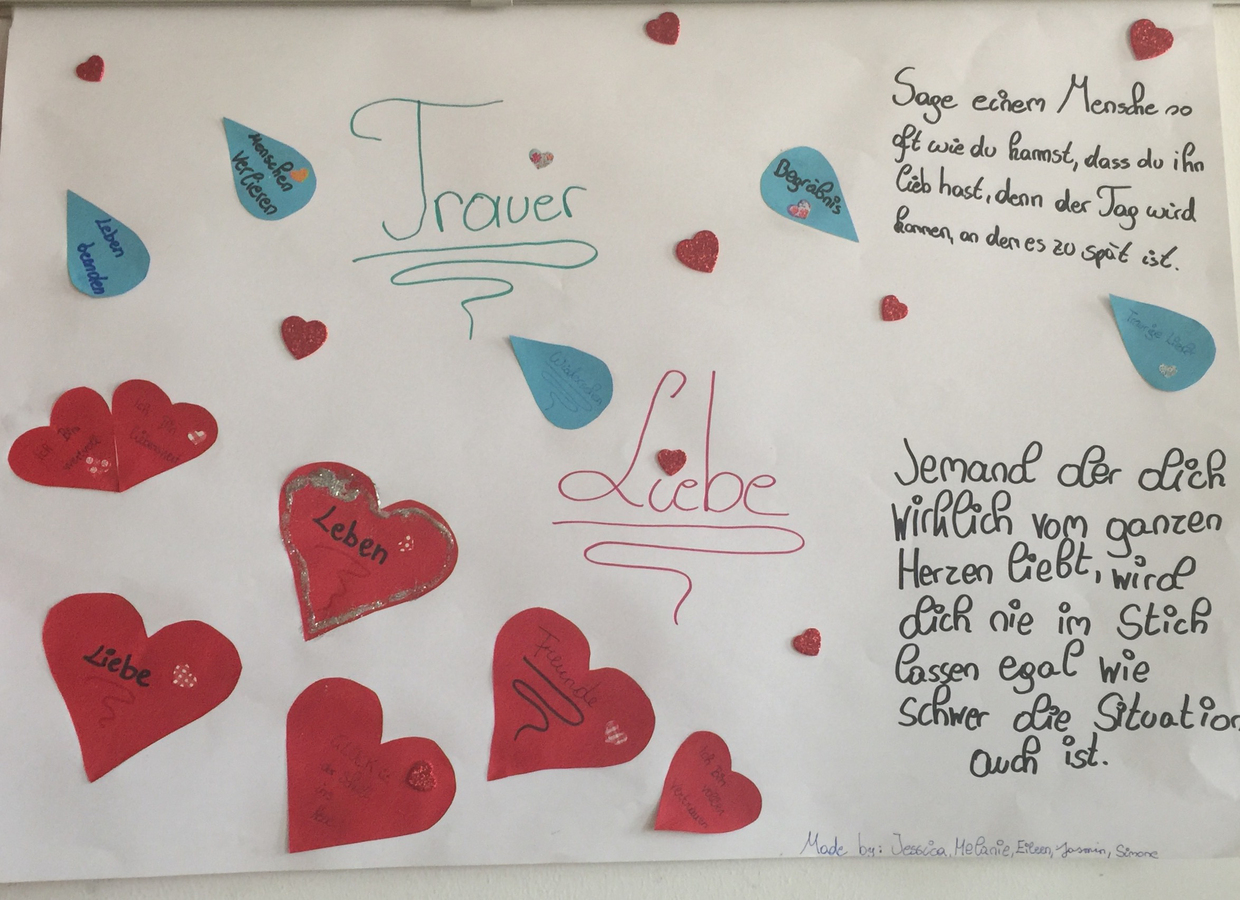 Trauer
Menschen
verlieren
Leben
beenden
Begräbnis
Sage einem Mensche so
oft wie du kannst, dass du ihn
lieb hast, denn der Tag wird
kommen, an den es zu spät ist.
Liebe
Ich Bin
Ich Bin
Leben
Liebe
Freunde
Ich Bin
Jemand der dich
wirklich vom ganzen
Herzen liebt, wird
dich nie im Stich
lassen egal wie
schwer die Situation
auch ist.
Made by: Jessica, Melanie, Eileen, Yasmin, Simone